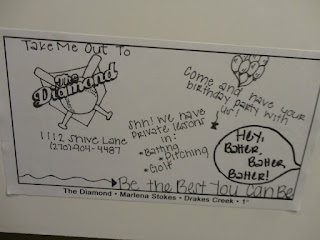 Take Me Out To
The
Diamond
1112 Shive Lane
(270)-904-4487
Come and have your
birthday party with
us!
Shh! We have
private lessons
in:
• Batting
• Pitching
• Golf
Hey,
Batter,
Batter,
Batter!
Be the Best You Can Be
The Diamond • Marlena Stokes • Drakes Creek • 1"